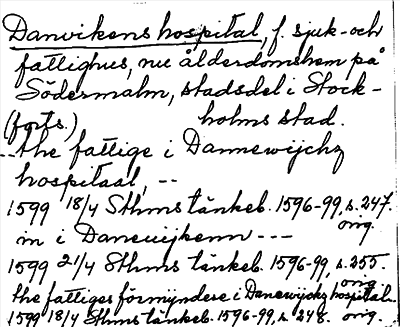 Danvikens hospital, f. sjuk- och
fattighus, nu ålderdomshem på
Södermalm, stadsdel i Stock-
(forts.) holms stad.
-- the fattige i Dannewijchz
hospitaal, --
1599 18/4 Sthms tänkeb. 1596-99, s. 247.
orig.
in i Danewijkenn ---
1599 21/4 Sthms tänkeb. 1596-99, s. 255.
orig.
the fattiges förmyndere i Danewijchz hospitaln.
1599 18/4 Sthms tänkeb. 1596-99, s. 248. orig.